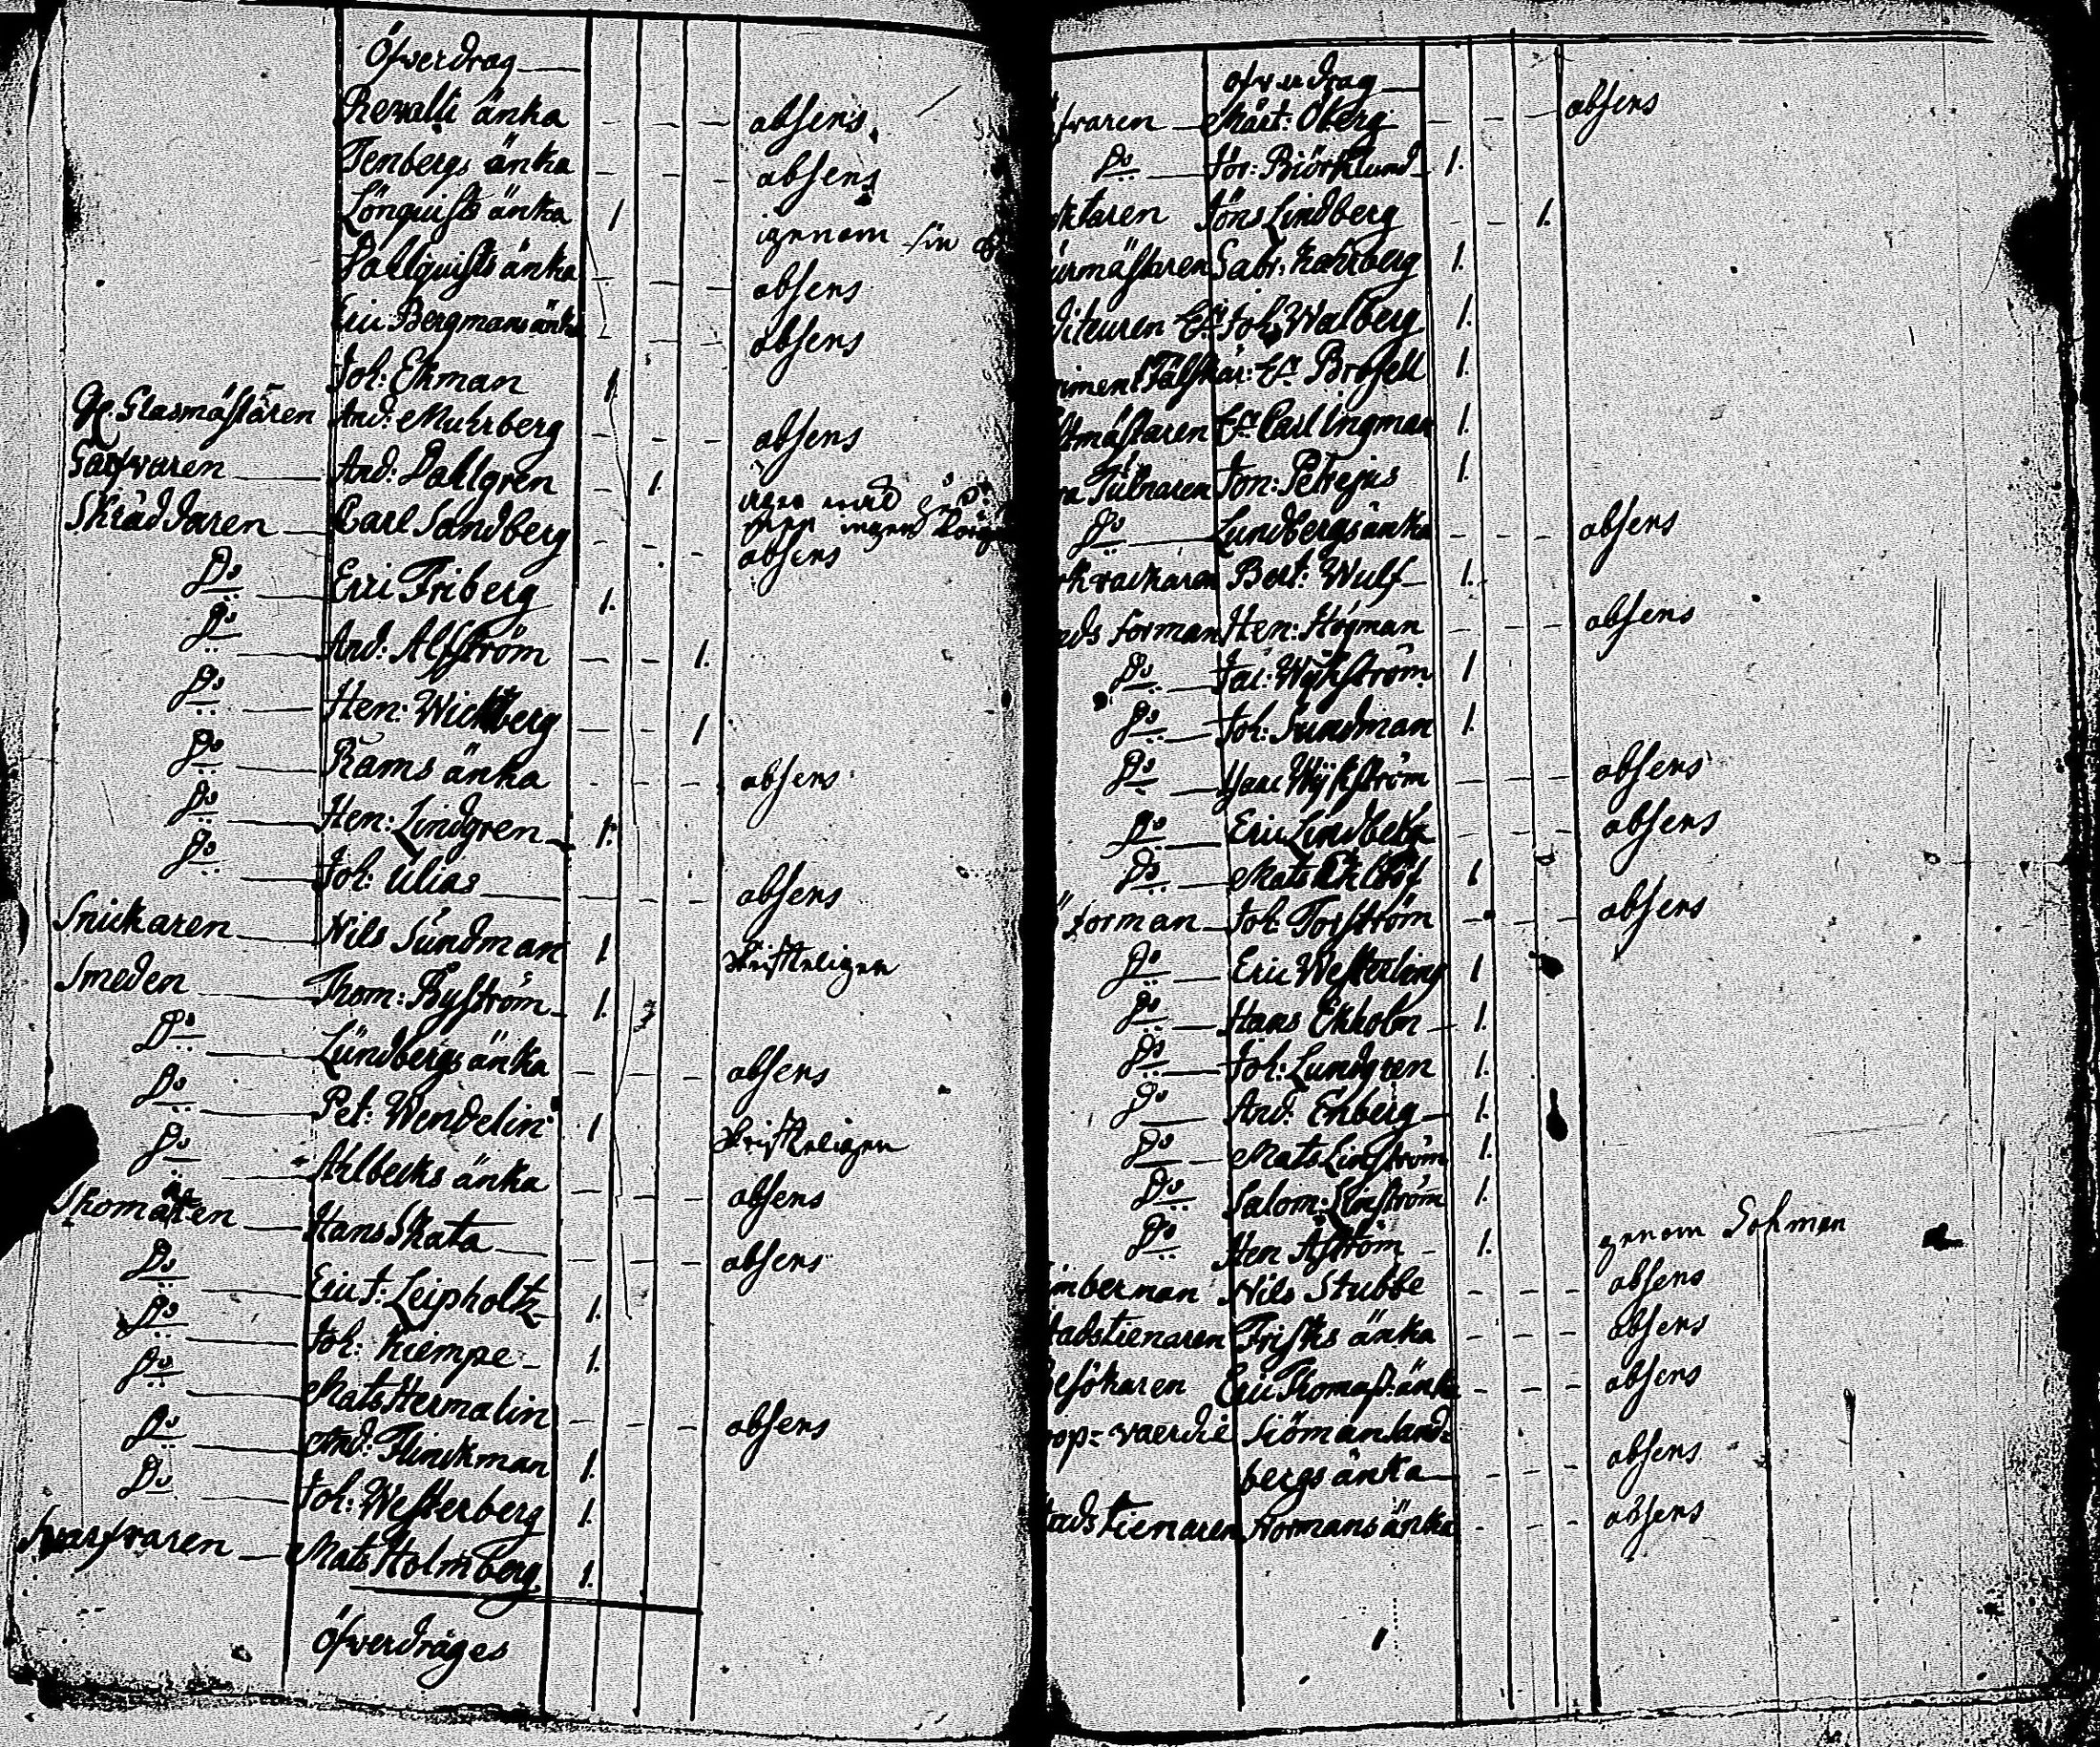 Öfverdrag
Revalli änka - - - absens
Tenbergs änka - - - absens
Lönquists änka 1 igenom sin
Dahlquists änka - - - absens
Eric Bergmans änka - - - absens
Joh: Ekman 1.
Glasmästaren And: Muhrberg - - - absens
Garfvaren And: Dahlgren - 1.
Skräddaren Carl Sandberg - - - absens
Do Eric Friberg 1.
Do And: Alfström - - 1.
Do Hen: Wickberg - - 1
Do Rams änka - - - absens
Do Hen: Lindgren 1.
Do Joh: Ulias - - - absens
Snickaren Nils Sundman 1 skriftteligen
Smeden Thom: Byström 1.
Do Lundbergs änka - - - absens
Do Pet: Wendelin 1 skriftteligen
Do Ahlbecks änka - - - absens
Skomaren Hans Skata - - - absens
Do Eric J: Leipholtz 1.
Do Joh: Kiempe 1.
Do Mats Hermalin - - - absens
Do And: Flinckman 1.
Do Joh: Westerberg 1.
Svarfvaren Mats Holmberg 1.
Öfverdrages
ofverdrag
fvaren Mårt: Öberg - - - absens
Do Jör: Biörklund 1.
ktaren Jöns Lindberg - - 1.
urmästaren Gabr: Kahlberg 1.
diteuren Joh Walberg 1.
riment Fältskär: Brosell 1.
tmästaren Carl Ingman 1.
ra Tulnaren Jon: Petrejus 1.
Do Lundbergs änka - - - absens
rkvacktaren Bert: Wulf 1.
eds forman Hen: Högman - - - absens
Do Jac: Wijkström 1
Do Joh: Sundman 1.
Do Isaac Wijkström - - - absens
Do Eric Lindbeck - - - absens
Do Mats 1
forman Joh: Torström - - - absens
Do Eric Westerling 1
Do Hans Ekholm 1.
Do Joh: Lundgren 1.
Do And: Enberg 1.
Do Mats Linström 1.
Do Salom: Linström 1.
Do Hen Åström 1. genom Sohmen
imberman Nils Stubbe - - - absens
tadstienaren Frisks änka - - - absens
Besökaren Eric Thomaß: änka - - - absens
oop-vaerdie Siöman Sand-
bergs änka - - - absens
tadstienaren Normans änka - - - absens